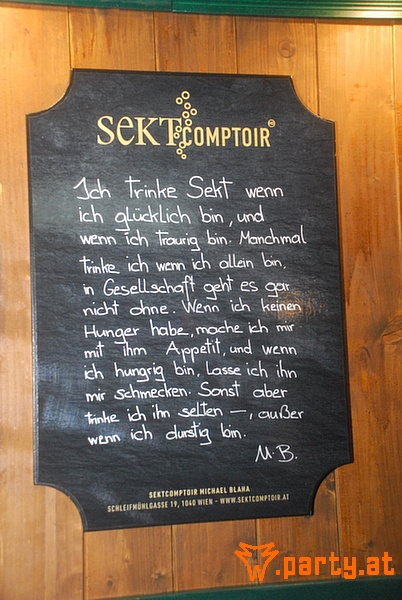 SEKTCOMPTOIR
Ich trinke Sekt wenn
ich glücklich bin, und
wenn ich traurig bin. Manchmal
trinke ich wenn ich allein bin,
in Gesellschaft geht es gar
nicht ohne. Wenn ich keinen
Hunger habe, mache ich mir
mit ihm Appetit, und wenn
ich hungrig bin, lasse ich ihn
mir schmecken. Sonst aber
trinke ich ihn selten –, außer
wenn ich durstig bin.
M.B.
SEKTCOMPTOIR MICHAEL BLAHA
SCHLEIFMÜHLGASSE 19, 1040 WIEN - WWW.SEKTCOMPTOIR.AT
.party.at